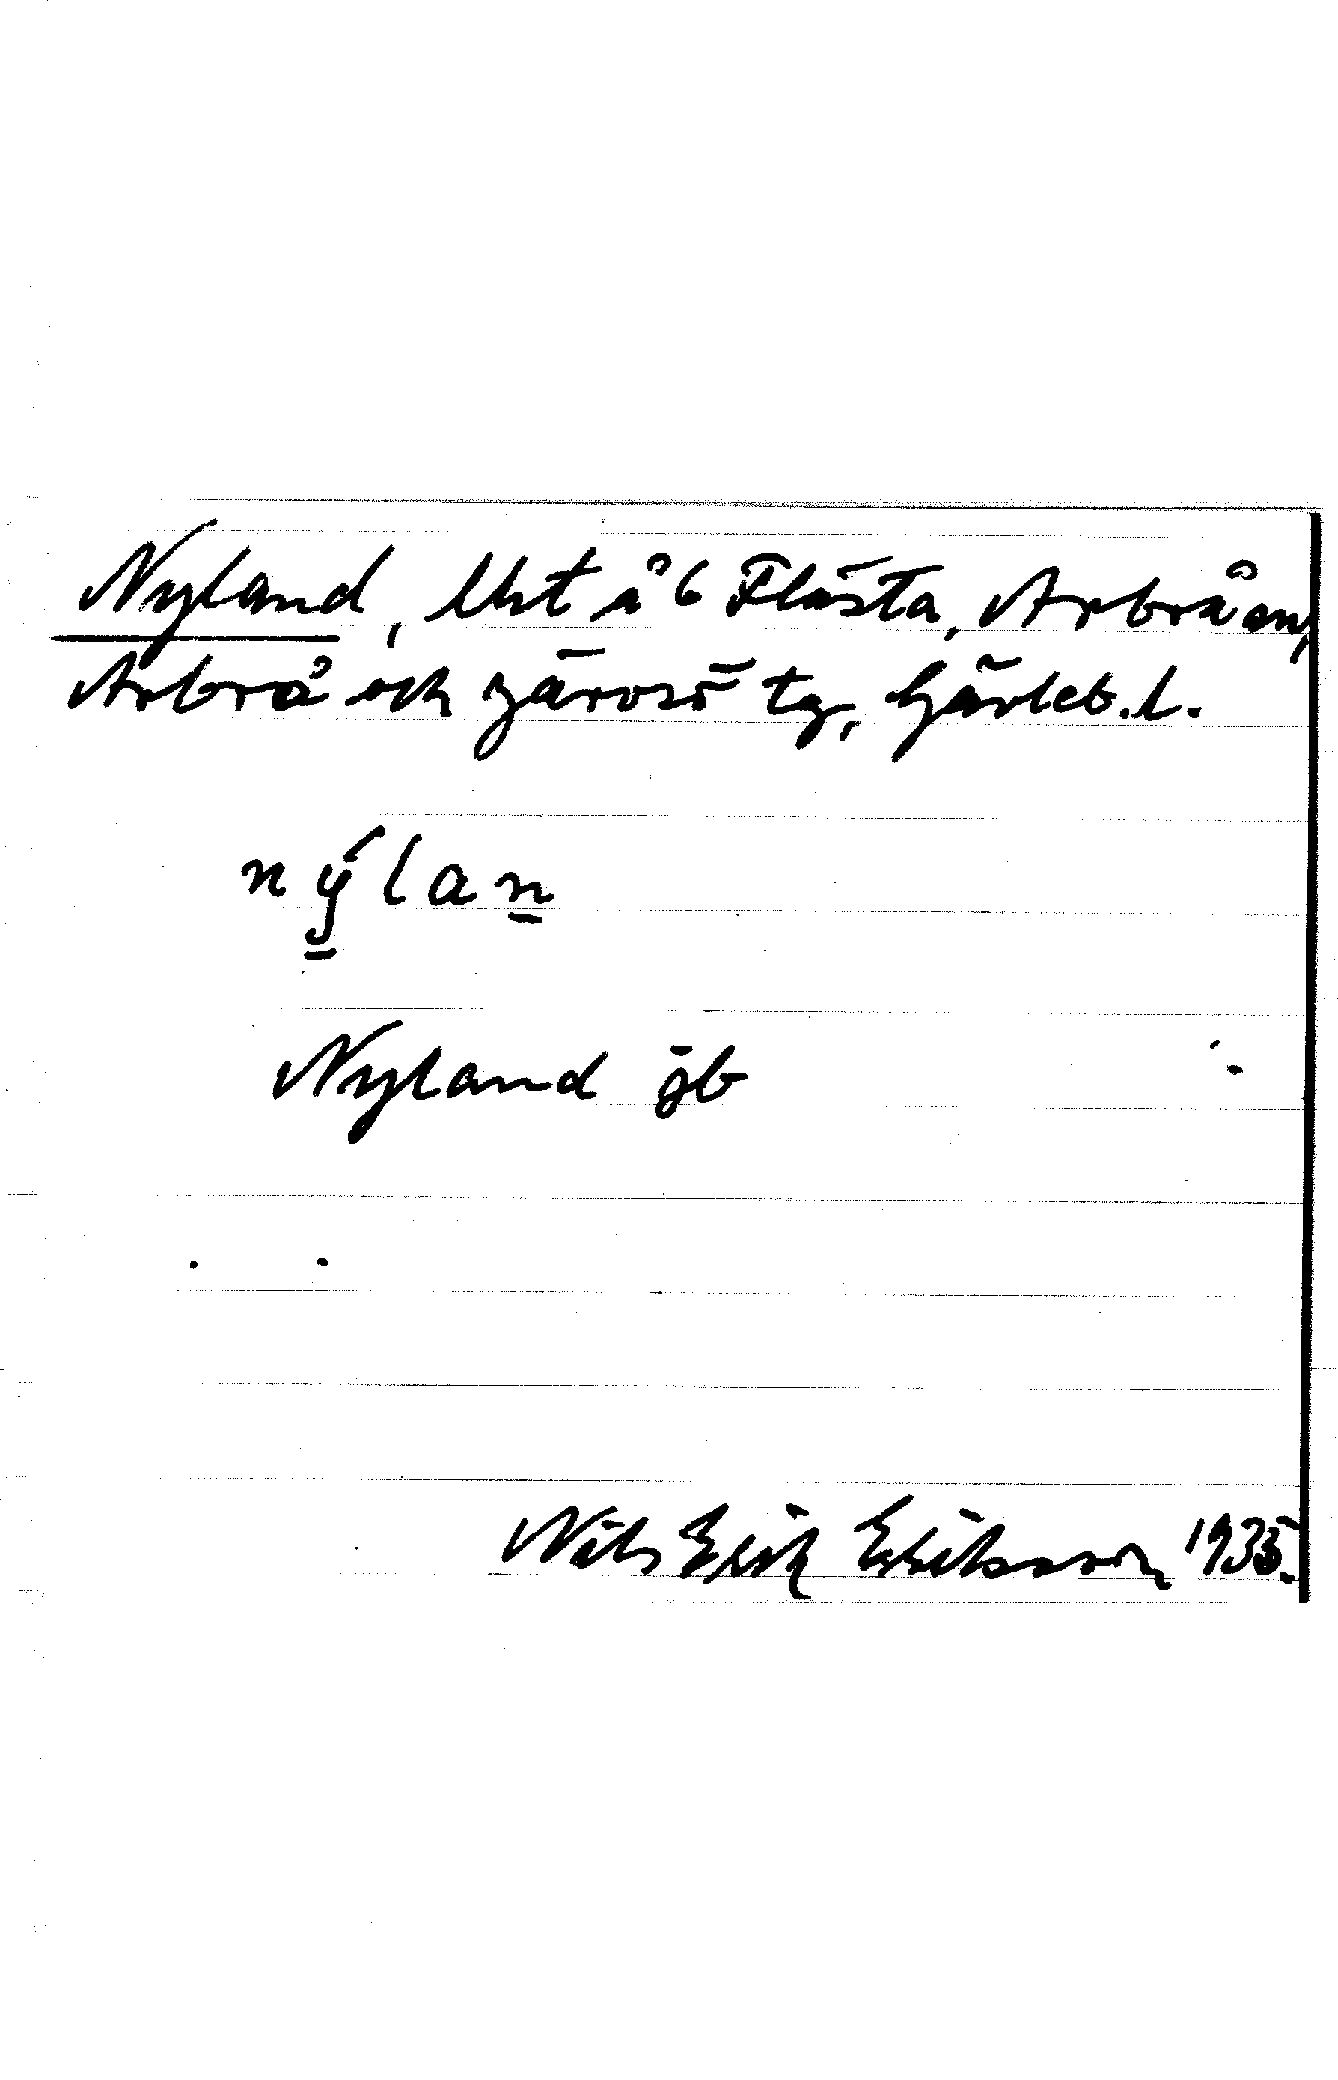 Nyland, lht å 6 Flästa, Arbrå sn,
Arbrå och Järvsö tg, Gävleb. l.
nýlan
Nyland jb
Nils Erik Eriksson 1935.